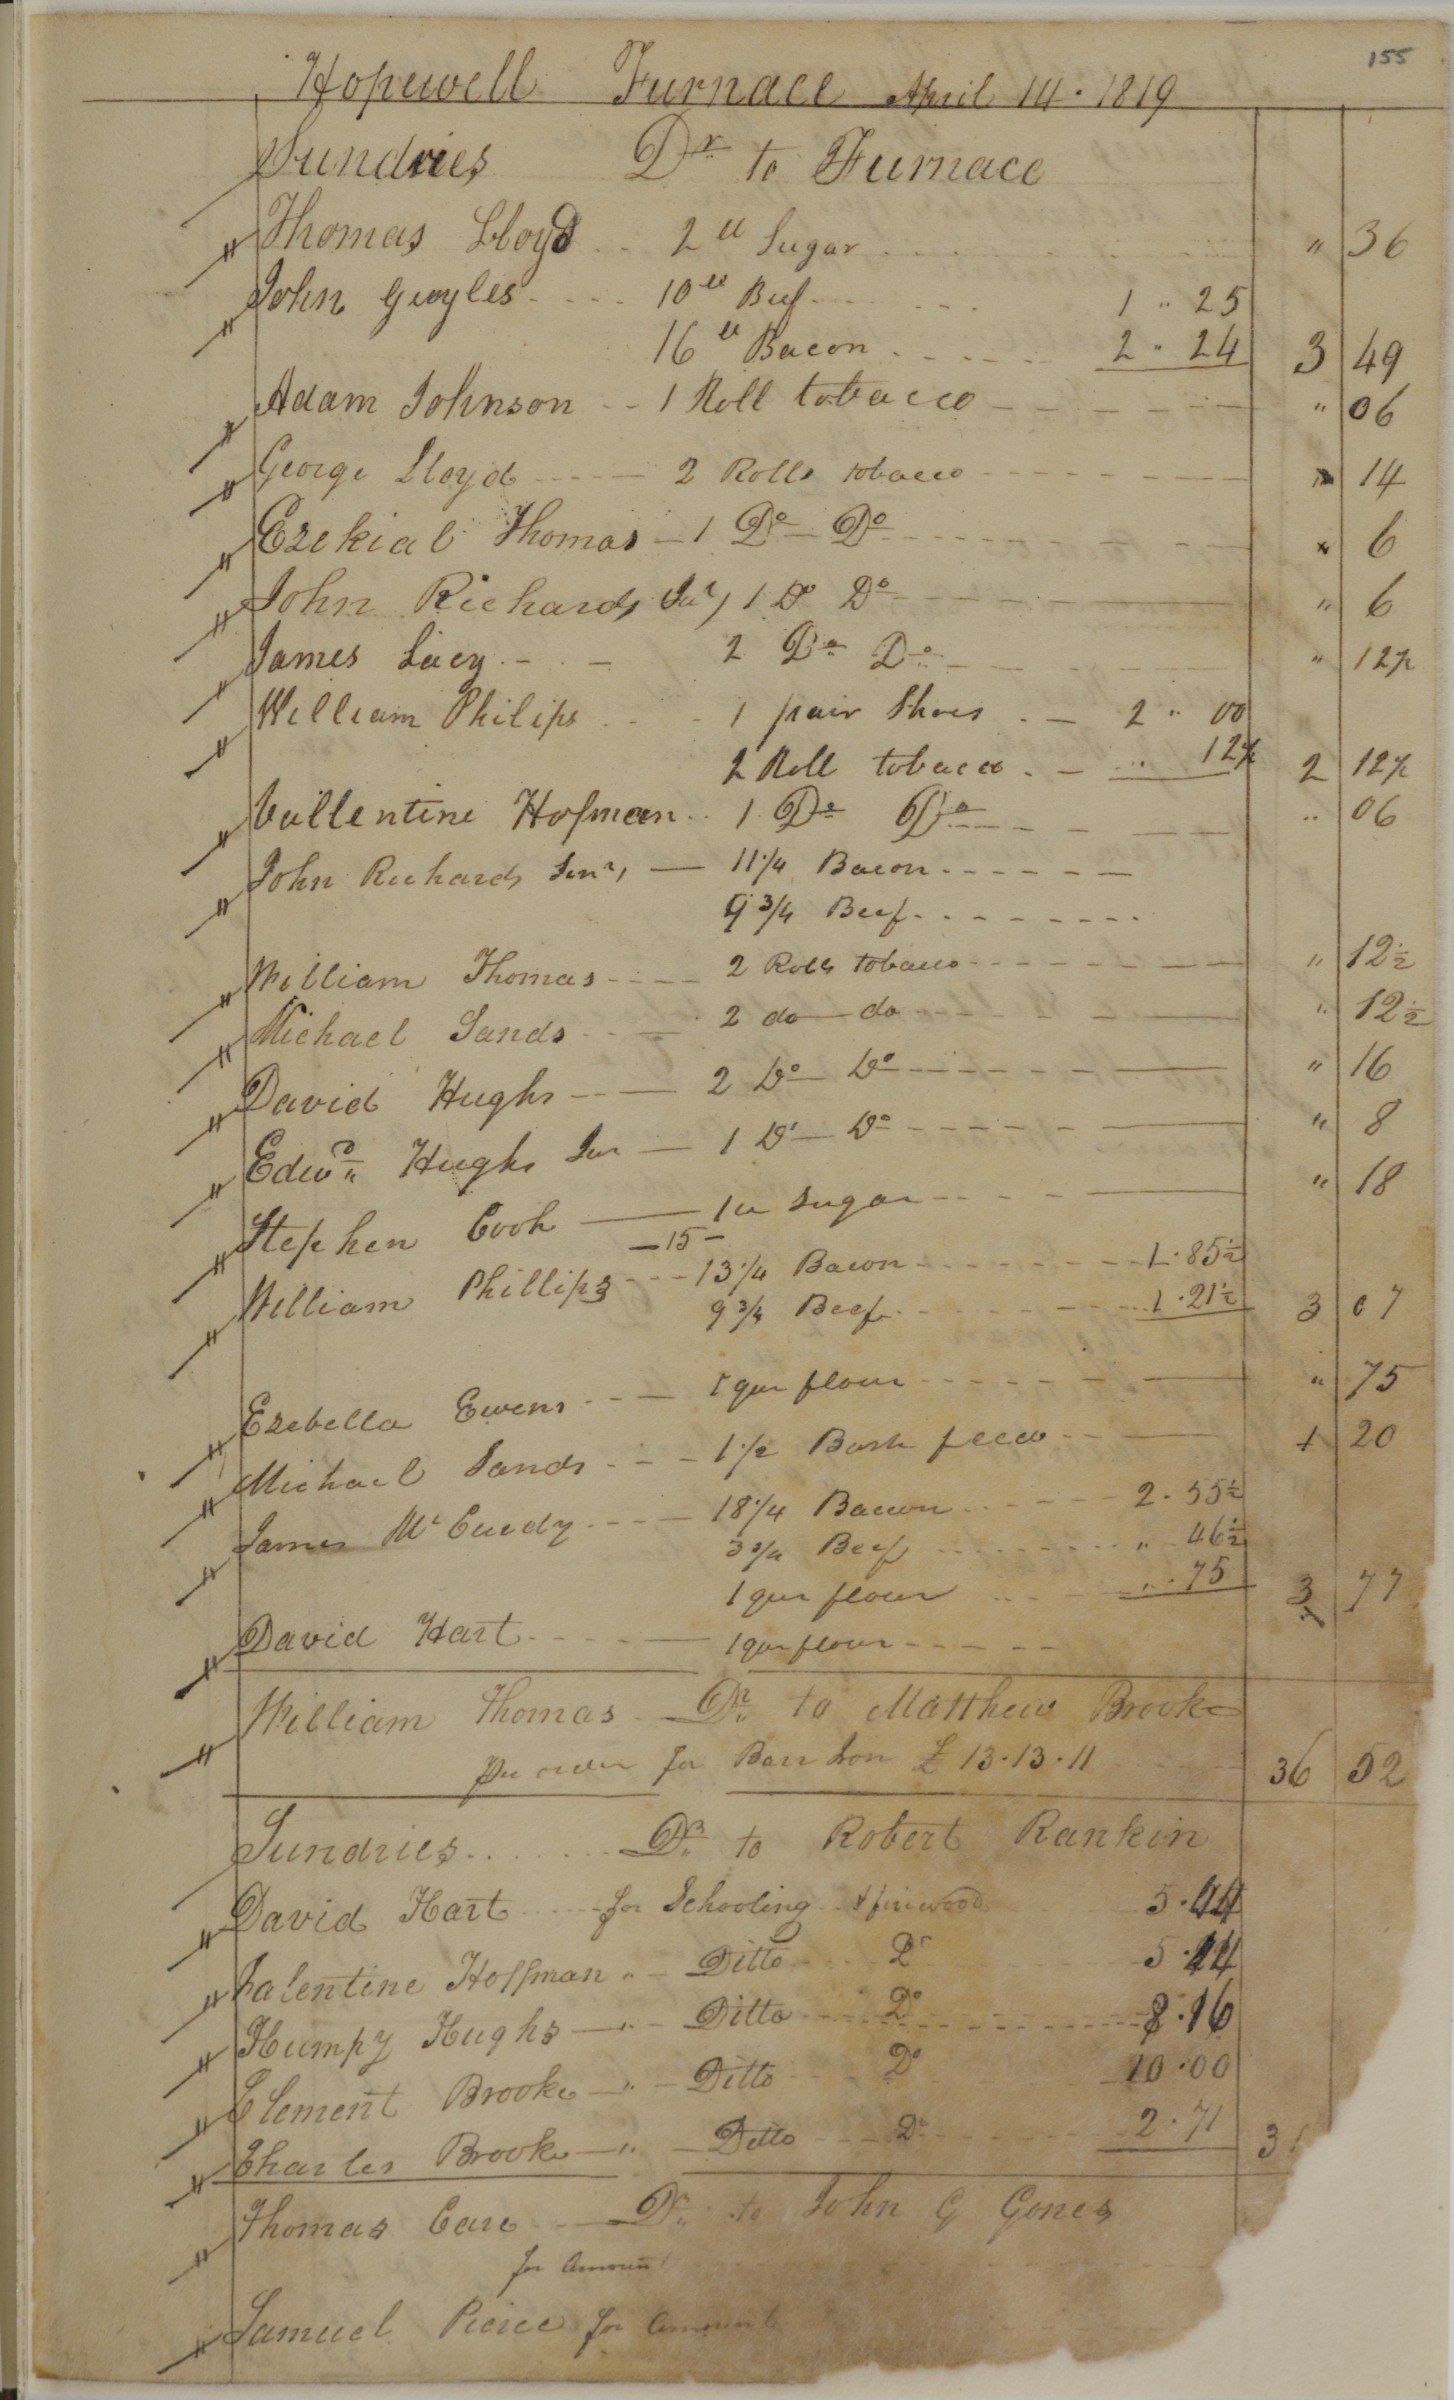 155
Hopewell Furnace April 14 · 1819
Sundries Dr to Furnace
Thomas Lloyd 2 ll Sugar " 36
John Guyles 10 ll Beef 1 " 25
16 ll Bacon 2 " 24 3 49
Adam Johnson 1 Roll tobacco " 06
George Lloyd 2 Rolls tobacco " 14
Ezekial Thomas 1 Do Do " 6
John Richards 1 Do Do " 6
James Lacy 2 Do Do " 12½
William Philips 1 pair Shoes 2 " 00
2 Roll tobacco " 12½ 2 12½
Vallentine Hofman 1 Do Do " 06
John Richards Senr, 11¼ Bacon
9¾ Beef
William Thomas 2 Rolls tobacco " 12½
Michael Sands 2 do do " 12½
David Hughs 2 Do Do " 16
Edwd Hughs Jun 1 Do Do " 8
Stephen Cook 1 ll Sugar " 18
— 15 —
William Phillips 13¼ Bacon 1 · 85½
9¾ Beef 1 · 21½ 3 07
Ezebella Ewens 1 qur flour " 75
Michael Sands 1½ Bush feed 1 20
James McCurdy 18¼ Bacon 2 · 55½
3¾ Beef " 46½
1 qur flour " 75 3 77
David Hart 1 qur flour
William Thomas Dr to Matthew Brooke
Per order for Barr Iron £ 13 · 13 · 11 36 52
Sundries Dr to Robert Rankin
David Hart for Schooling & firewood 5 · 44
Valentine Hoffman " Ditto Do 5 · 44
Humpy Hughs " Ditto Do 8 · 16
Clement Brooke " Ditto Do 10 · 00
Charles Brooke " Ditto Do 2 · 71 3
Thomas Care Dr to John G Gones
for Amount
Samuel Pierce for Amount